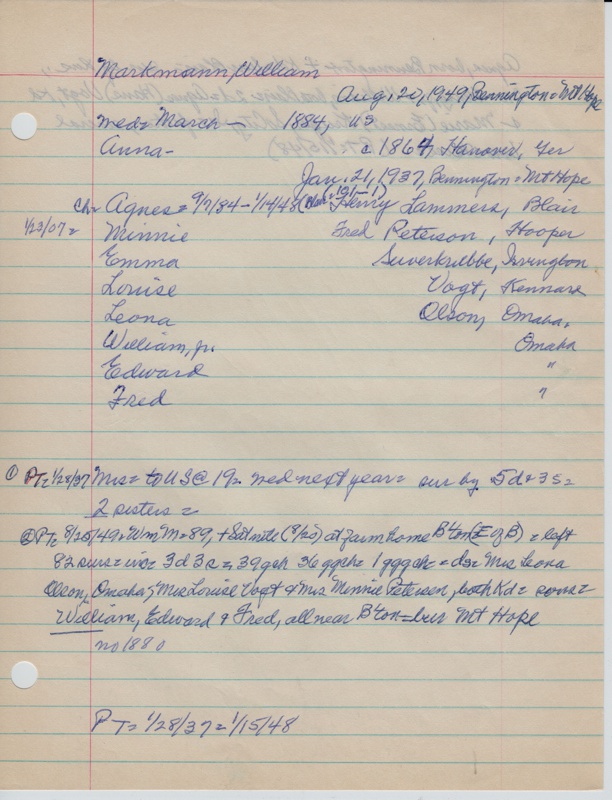 Markmann, William
Aug. 20, 1949, Bennington = Mt Hope
med = March - 1884, US
Anna - c 1864, Hanover, Ger
Jan. 21, 1937, Bennington = Mt Hope
Ch = Agnes = 9/7/84 - 1/14/48 Henry Lammers, Blair
1/23/07 = Minnie Fred Peterson, Hooper
Emma Suverkrubbe, Irvington
Louise Vogt, Kennard
Leona Olson, Omaha,
William, jr. Omaha
Edward "
Fred "
① PT = 1/28/37 Mrs = to US @ 19 = med next year = sur by 5d = 3s =
2 sisters =
② PT = 8/25/49 = Wm M = 89, + Sat nite (8/20) at farm home Bton (E of B) = left
82 survs = inc = 3d 3s = 39 gch 36 ggch = 1 gggch = ds = Mrs Leona
Olson, Omaha; Mrs Louise Vogt & Mrs Minnie Petersen, both Kd = sons =
William, Edward & Fred, all near Bton = bur Mt Hope
no 1880
PT = 1/28/37 = 1/15/48